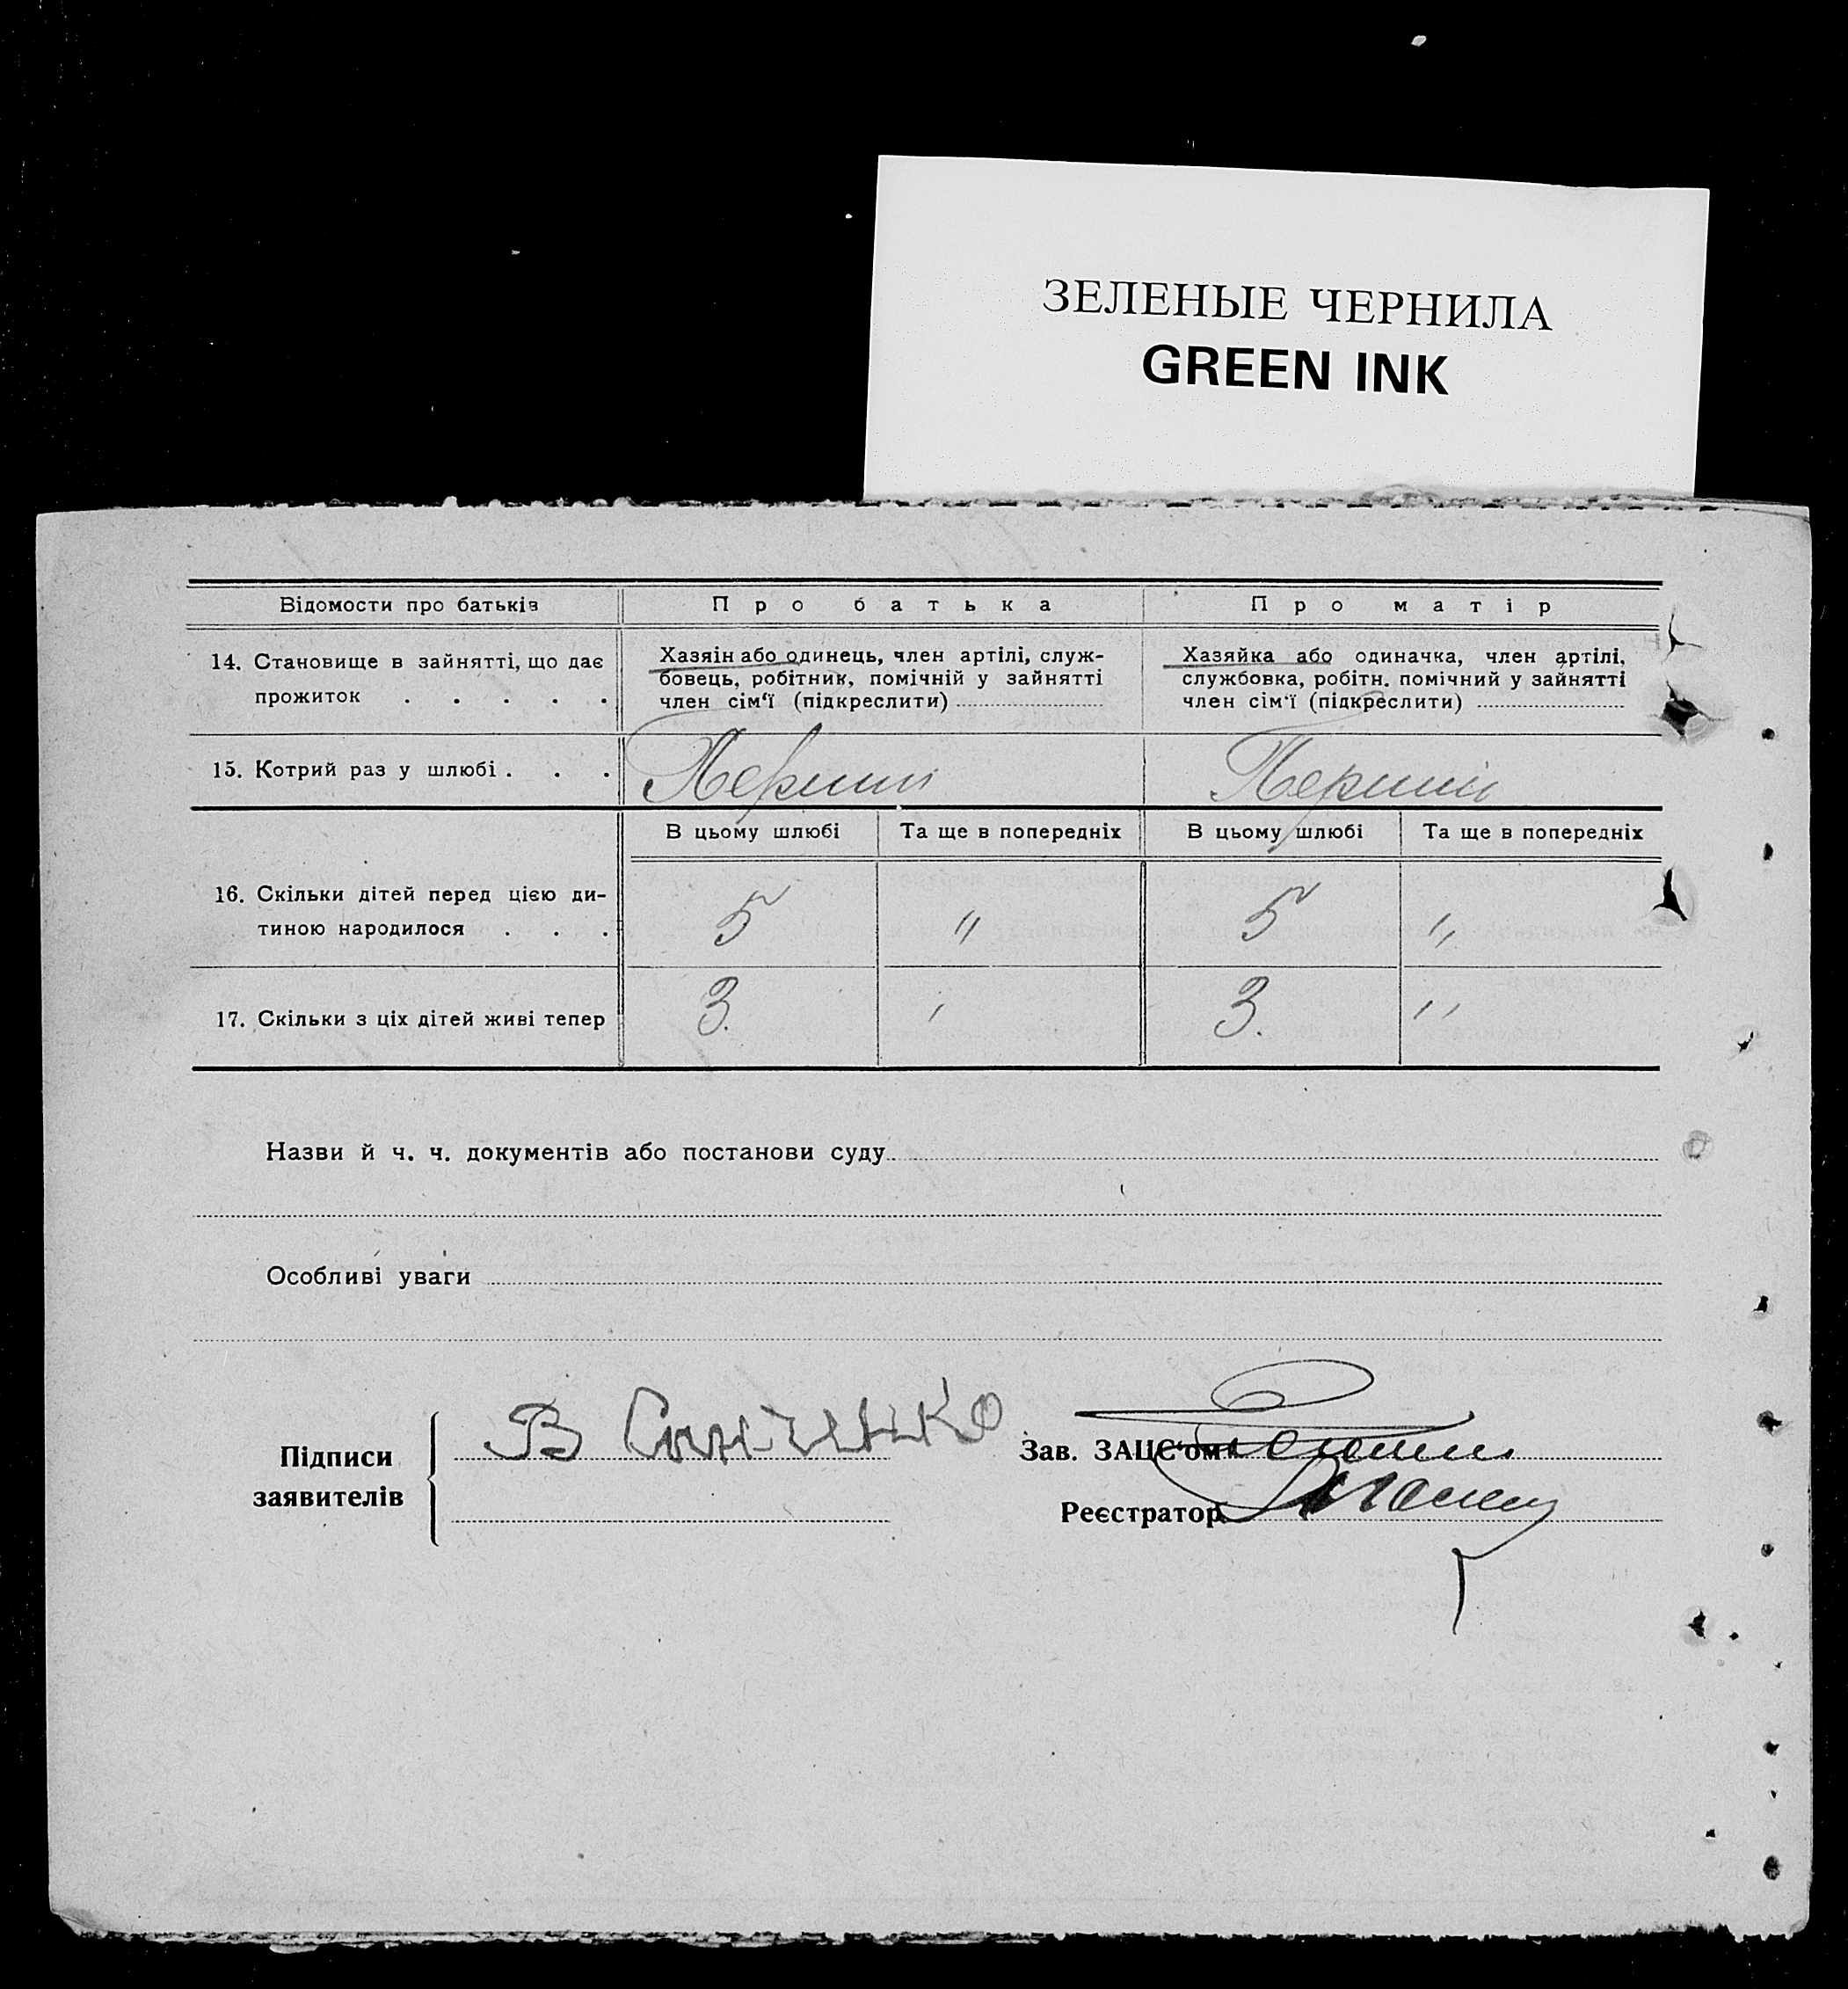 ЗЕЛЕНЫЕ ЧЕРНИЛА
GREEN INK
Відомости про батьків
Про батька
Про матір
14. Становище в зайнятті, що дає
прожиток . . . . .
Хазяін або одинець, член артілі, служ-
бовець, робітник, помічній у зайнятті
член сім‘ї (підкреслити)
Хазяйка або одиначка, член артілі,
службовка, робітн. помічний у зайнятті
член сім‘ї (підкреслити)
15. Котрий раз у шлюбі . . .
Перший
Перший
В цьому шлюбі
Та ще в попередніх
В цьому шлюбі
Та ще в попередніх
16. Скільки дітей перед цією ди-
тиною народилося . . .
5 " 5 "
17. Скільки з ціх дітей живі тепер
3. ' 3. "
Назви й ч. ч. документів або постанови суду
Особливі уваги
Підписи
заявителів
В
Зав. ЗАЦС‘ом
Реєстратор